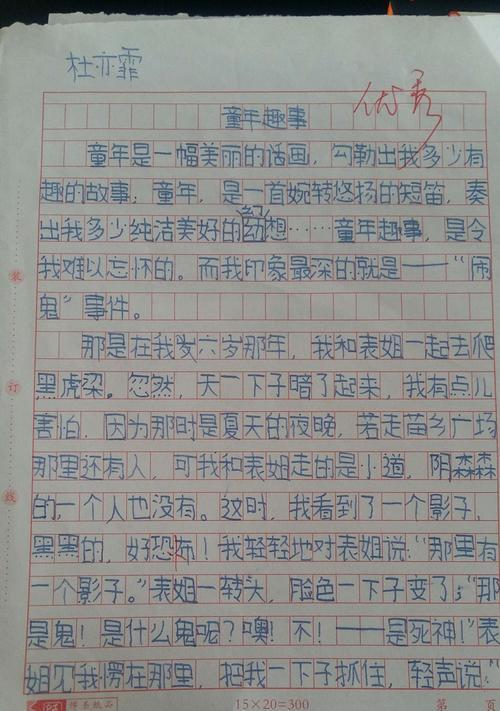 杜亦霏
优秀
童年趣事
童年是一幅美丽的话画，勾勒出我多少有
趣的故事；童年，是一首婉转悠扬的短笛，奏
出我多少纯洁美好的幻想……童年趣事，是令
我难以忘怀的。而我印象最深的就是——“闹
鬼”事件。
那是在我岁六岁那年，我和表姐一起去爬
黑虎梁。忽然，天一下子暗了起来，我有点儿
害怕，因为那时是夏天的夜晚，若走苗乡广场
那里还有人，可我和表姐走的是小道，阴森森
的，一个人也没有。这时，我看到了一个影子，
黑黑的，好恐怖！我轻轻地对表姐说：“那里有
一个影子。”表姐一转头，脸色一下子变了；“那
是鬼！是什么鬼呢？噢！不！——是死神！”表
姐见我愣在那里，把我一下子抓住，轻声说：“
装
订
线
博圣纸品
15×20=300
第 页